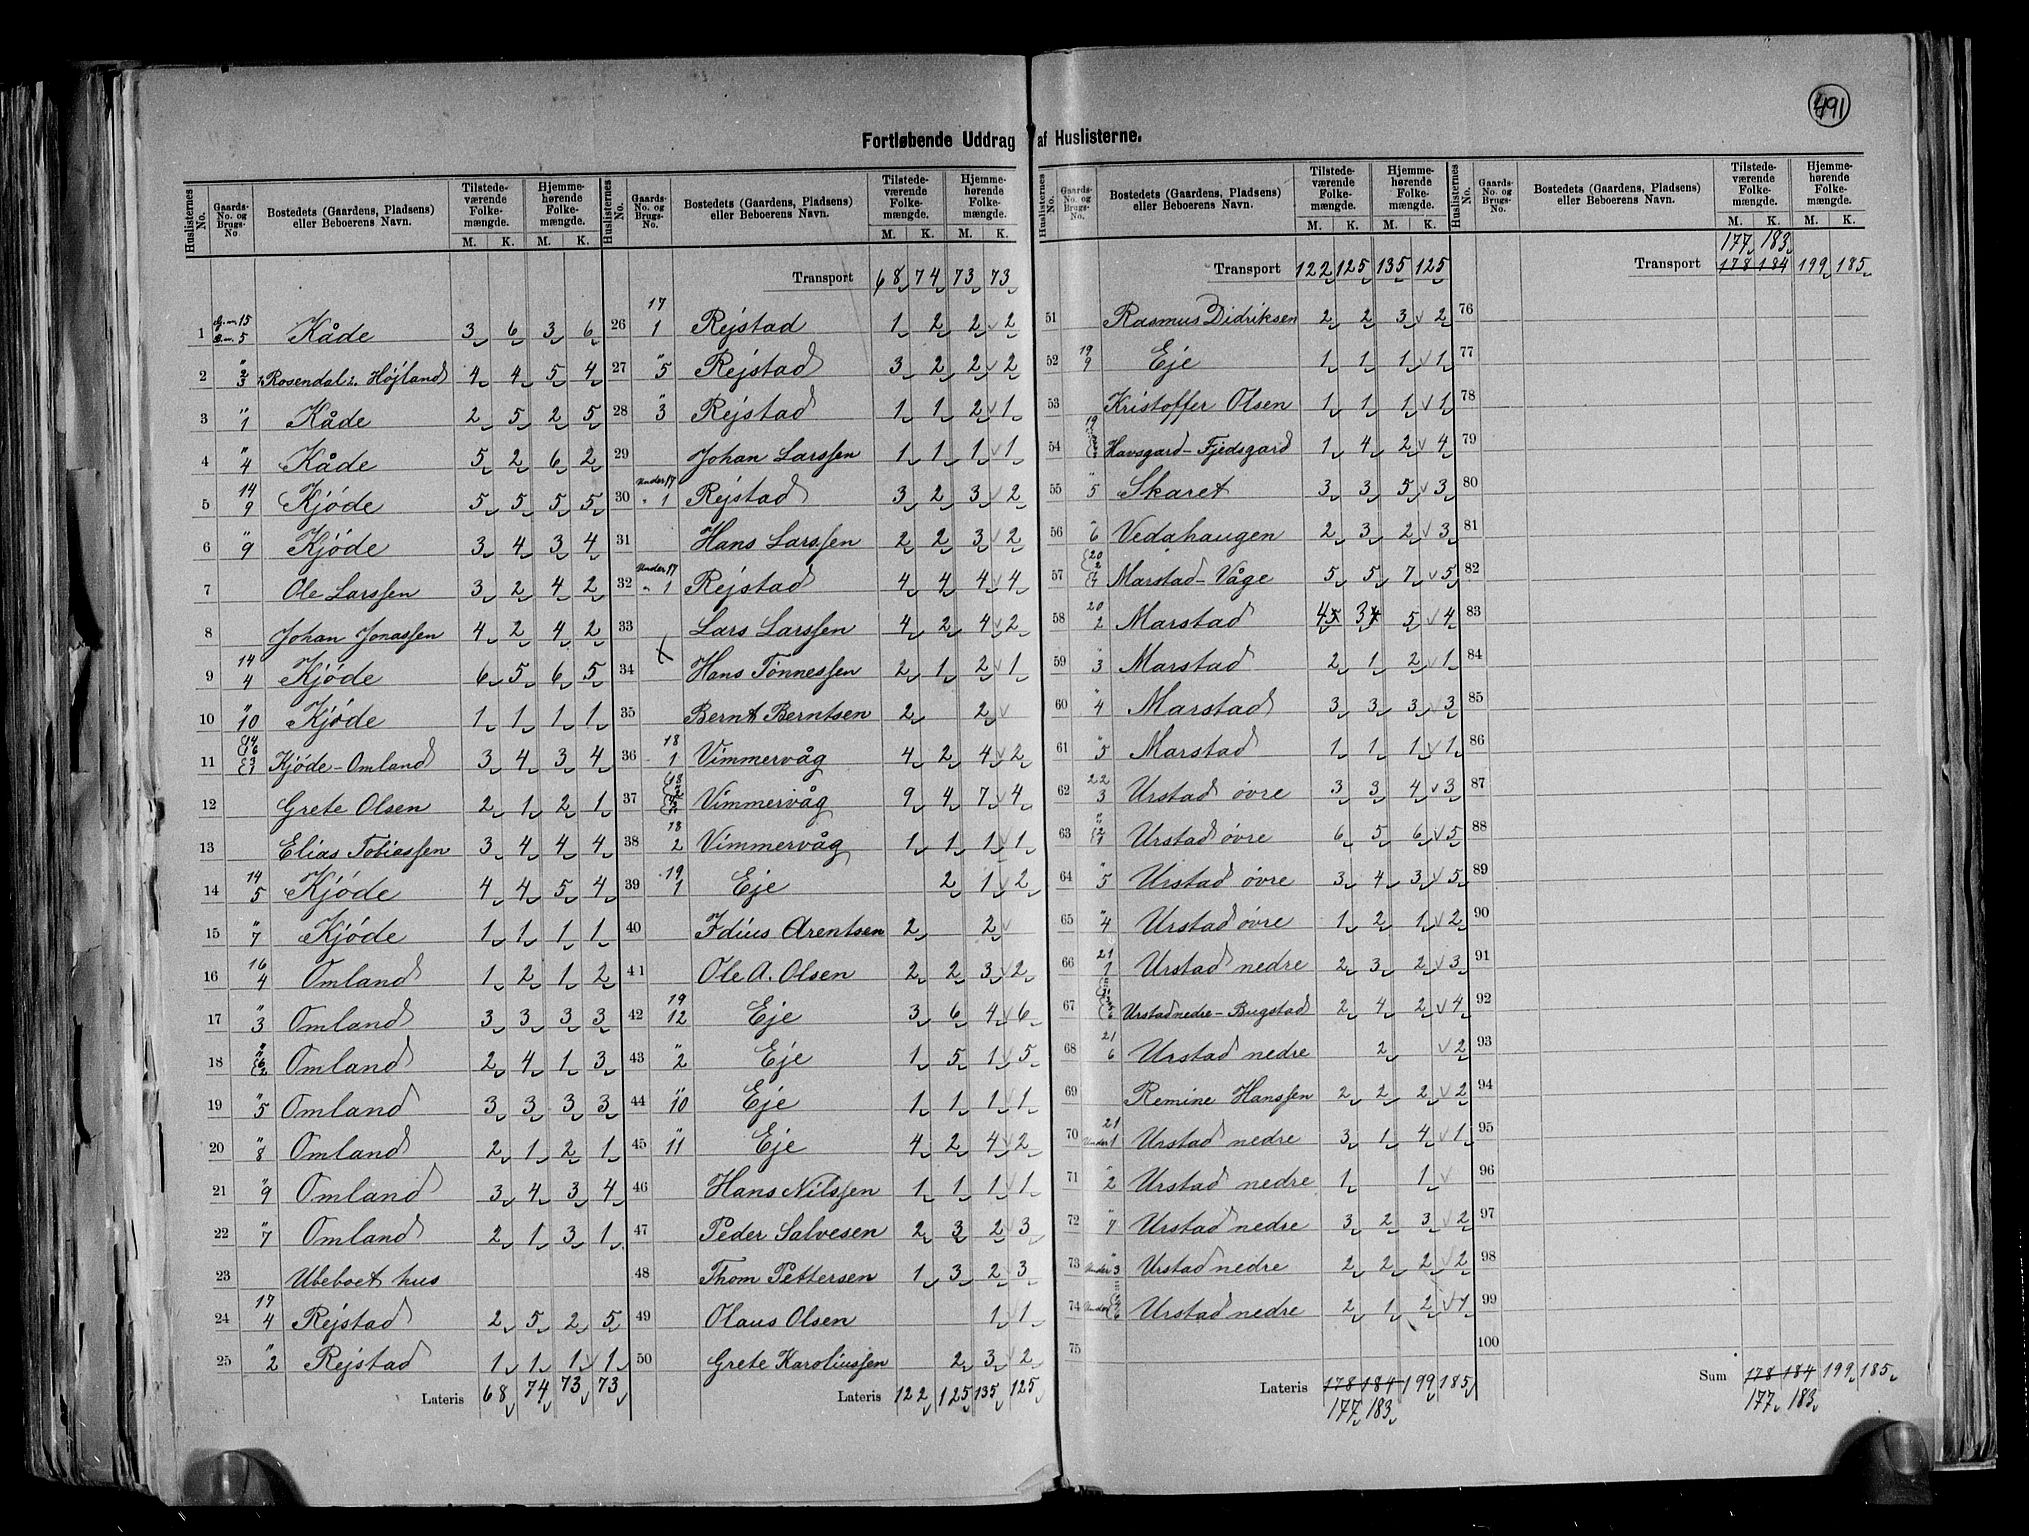 491
Fortløbende Uddrag af Huslisterne.
Huslisternes No. | Gaards-No. og Brugs-No | Bostedets (Gaardens, Pladsens) eller Beboerens Navn. | Tilstedeværende Folkemængde. M. K. | Hjemmehørende Folkemængde. M. K.
1 G.n. 15 B.n. 5 Kåde 3 6 3 6
2 " 2 3 Rosendal. Højland 4 4 5 4
3 " 1 Kåde 2 5 2 5
4 " 4 Kåde 5 2 6 2
5 14 9 Kjøde 5 5 5 5
6 " 9 Kjøde 3 4 3 4
7 Ole Larssen 3 2 4 2
8 Johan Jonassen 4 2 4 2
9 14 4 Kjøde 6 5 6 5
10 " 10 Kjøde 1 1 1 1
11 14 16 Kjøde-Omland 3 4 3 4
12 Grete Olsen 2 1 2 1
13 Elias Tobiassen 3 4 4 4
14 14 5 Kjøde 4 4 5 4
15 " 7 Kjøde 1 1 1 1
16 16 4 Omland 1 2 1 2
17 " 3 Omland 3 3 3 3
18 " 6 2 Omland 2 4 1 3
19 " 5 Omland 3 3 3 3
20 " 8 Omland 2 1 2 1
21 " 9 Omland 3 4 3 4
22 " 7 Omland 2 1 3 1
23 Ubeboet hus
24 17 4 Rejstad 2 5 2 5
25 " 2 Rejstad 1 1 1 1
Lateris 68 74 73 73
Huslisternes No. | Gaards-No. og Brugs-No. | Bostedets (Gaardens, Pladsens) eller Beboerens Navn. | Tilstedeværende Folkemængde. M. K. | Hjemmehørende Folkemængde. M. K.
Transport 68 74 73 73
26 17 1 Rejstad 1 2 2 2
27 " 5 Rejstad 3 2 2 2
28 " 3 Rejstad 1 1 2 1
29 Johan Larssen 1 1 1 1
30 Under 17 " 1 Rejstad 3 2 3 2
31 Hans Larssen 2 2 3 2
32 Under 17 " 1 Rejstad 4 4 4 4
33 Lars Larssen 4 2 4 2
34 X Hans Tønnessen 2 1 2 1
35 Bernt Berntsen 2 2
36 18 1 Vimmervåg 4 2 4 2
37 18 Vimmervåg 9 4 7 4
38 18 2 Vimmervåg 1 1 1 1
39 19 1 Eje 2 1 2
40 Idius Arentsen 2 2
41 Ole A. Olsen 2 2 3 2
42 19 12 Eje 3 6 4 6
43 " 2 Eje 1 5 1 5
44 " 10 Eje 1 1 1 1
45 " 11 Eje 4 2 4 2
46 Hans Nilssen 1 1 1 1
47 Peder Salvesen 2 3 2 3
48 Thom Pettersen 1 3 2 3
49 Olaus Olsen 1 1
50 Grete Karoliussen 2 3 2
Lateris 122 125 135 125
Huslisternes No. | Gaards-No. og Brugs-No. | Bostedets (Gaardens, Pladsens) eller Beboerens Navn. | Tilstedeværende Folkemængde. M. K. | Hjemmehørende Folkemængde. M. K.
Transport 122 125 135 125
51 Rasmus Didriksen 2 2 3 2
52 19 9 Eje 1 1 1 1
53 Kristoffer Olsen 1 1 1 1
54 19 Havsgard-Fjedsgard 1 4 2 4
55 " 5 Skaret 3 3 5 3
56 " 6 Vedahaugen 2 3 2 3
57 20 2 7 Marstad-Våge 5 5 7 5
58 20 2 Marstad 4 5 3 4 5 4
59 " 3 Marstad 2 1 2 1
60 " 4 Marstad 3 3 3 3
61 " 5 Marstad 1 1 1 1
62 22 3 Urstad øvre 3 3 4 3
63 " 2 7 Urstad øvre 6 5 6 5
64 " 5 Urstad øvre 3 4 3 5
65 " 4 Urstad øvre 1 2 1 2
66 21 1 Urstad nedre 2 3 2 3
67 Urstad nedre-Bugstad 2 4 2 4
68 21 6 Urstad nedre 2 2
69 Remine Hanssen 2 2 2 2
70 21 Under 1 Urstad nedre 3 1 4 1
71 " 2 Urstad nedre 1 1
72 " 7 Urstad nedre 3 2 3 2
73 " Under 3 Urstad nedre 2 2 2 2
74 Under Urstad nedre 2 1 2 1
75
Lateris 178 184 199 185
177 183
Huslisternes No. | Gaards-No. og Brugs-No. | Bostedets (Gaardens, Pladsens) eller Beboerens Navn. | Tilstedeværende Folkemængde. M. K. | Hjemmehørende Folkemængde. M. K.
177 183
Transport 178 184 199 185
76
77
78
79
80
81
82
83
84
85
86
87
88
89
90
91
92
93
94
95
96
97
98
99
100
Sum 178 184 199 185
177 183